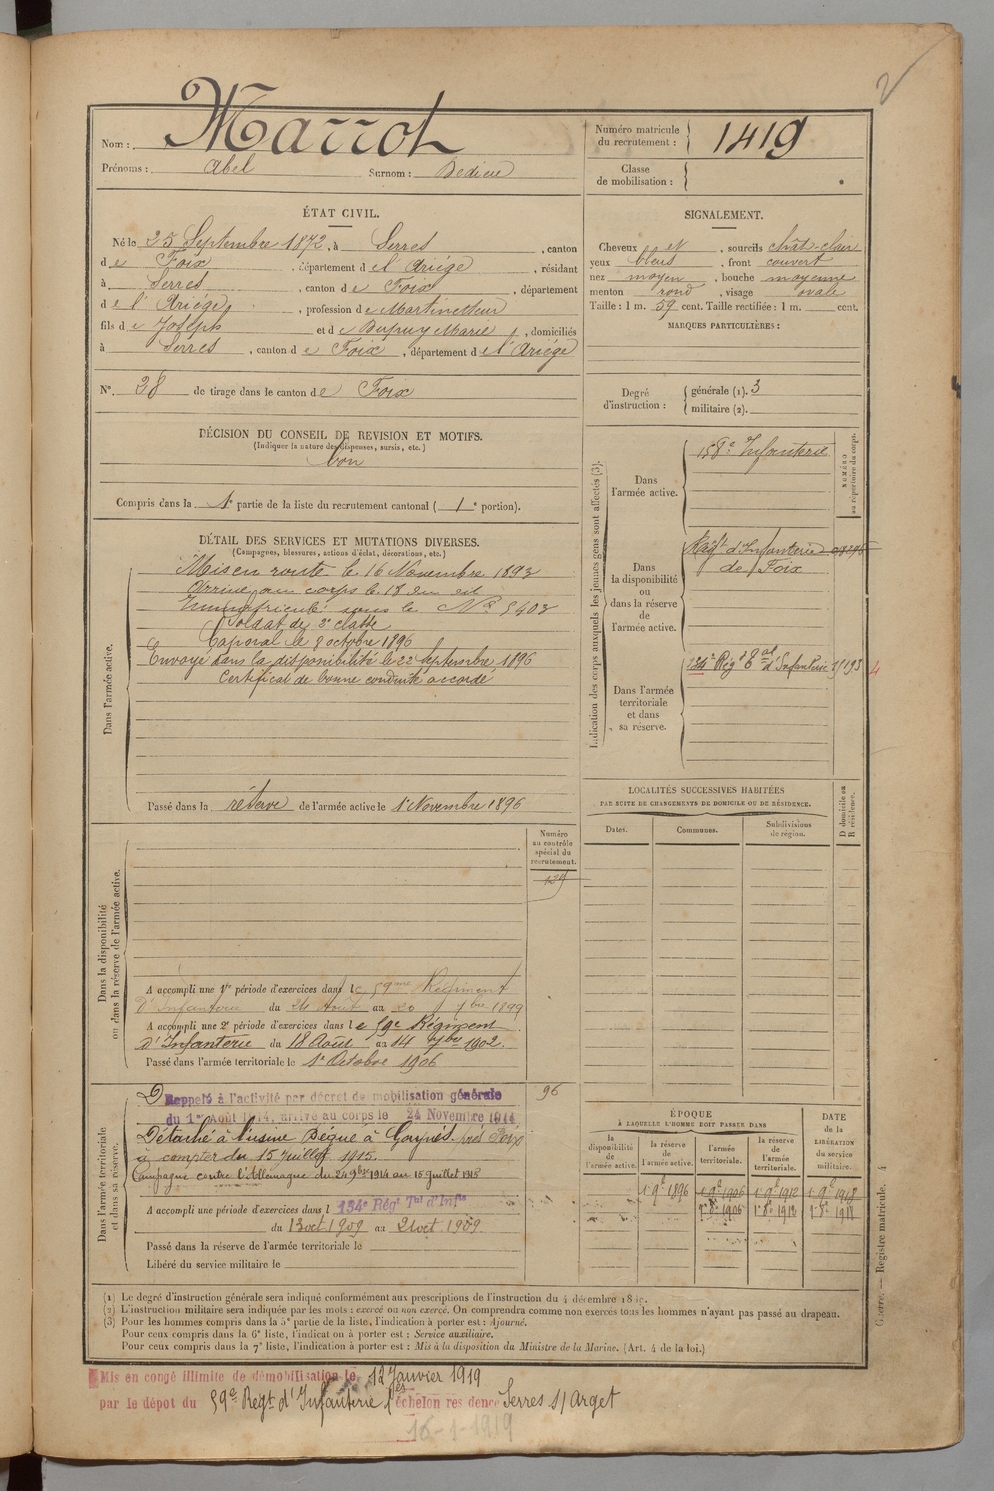 2
Nom : Marrot
Prénoms : Abel Surnom : Bedicu
Numéro matricule du recrutement : 1419
Classe de mobilisation :
ÉTAT CIVIL.
Né le 25 Septembre 1872, à Serres, canton
de Foix, département de l'Ariége, résidant
à Serres, canton de Foix, département
de l'Ariége, profession de Martineteur
fils de Joseph et de Dupuy Marie, domiciliés
à Serres, canton de Foix, département de l'Ariége
No. 28 de tirage dans le canton de Foix
SIGNALEMENT.
Cheveux et, sourcils chât-clair
yeux bleus, front couvert
nez moyen, bouche moyenne
menton rond, visage ovale
Taille : 1 m. 59 cent. Taille rectifiée : 1 m. cent.
MARQUES PARTICULIÈRES :
Degré d'instruction : générale (1). 3
militaire (2).
DÉCISION DU CONSEIL DE REVISION ET MOTIFS.
(Indiquer la nature des dispenses, sursis, etc.)
bon
Compris dans la 1e partie de la liste du recrutement cantonal (1e portion).
DÉTAIL DES SERVICES ET MUTATIONS DIVERSES.
(Campagnes, blessures, actions d'éclat, décorations, etc.)
Dans l'armée active.
Mis en route le 16 Novembre 1893
Arrivé au corps le 18 du dit
Immatriculé sous le No 5403
Soldat de 2e classe
Caporal le 8 octobre 1896
Envoyé dans la disponibilité le 22 Septembre 1896
Certificat de bonne conduite accordé
Passé dans la réserve de l'armée active le 1er Novembre 1896
Indication des corps auxquels les jeunes gens sont affectés (3).
NUMÉRO au répertoire du corps.
Dans l'armée active.
158e Infanterie
Dans la disponibilité ou dans la réserve de l'armée active.
Régt d'Infanterie
de Foix
Dans l'armée territoriale et dans sa réserve.
134e Régt tal d'Infanterie
4
LOCALITÉS SUCCESSIVES HABITÉES
PAR SUITE DE CHANGEMENTS DE DOMICILE OU DE RÉSIDENCE.
Dates. Communes. Subdivisions de région. D domicile ou R résidence.
Numéro au contrôle spécial du recrutement.
129
Dans la disponibilité ou dans la réserve de l'armée active.
A accompli une 1re période d'exercices dans le 59me Régiment
D'Infanterie du 24 Août au 20 7bre 1899
A accompli une 2e période d'exercices dans le 59e Régiment
D'Infanterie du 18 Août au 14 7bre 1902.
Passé dans l'armée territoriale le 1er Octobre 1906
96
Dans l'armée territoriale et dans sa réserve.
Rappelé à l'activité par décret de mobilisation générale
du 1er Août 1914, arrivé au corps le 24 Novembre 1914
Détaché à l'usine Bégué à près Foix
à compter du 15 juillet 1915.
Campagne contre l'Allemagne du 24 9bre 1914 au 15 juillet 1915
A accompli une période d'exercices dans l 134e Régt Tal d'Infie
du 13 oct 1909 au 21 oct 1909
Passé dans la réserve de l'armée territoriale le
Libéré du service militaire le
ÉPOQUE
À LAQUELLE L'HOMME DOIT PASSER DANS
la disponibilité de l'armée active.
la réserve de l'armée active.
l'armée territoriale.
la réserve de l'armée territoriale.
DATE de la LIBÉRATION du service militaire.
1er 9bre 1896 1er 9bre 1906 1er 9bre 1912 1er 9bre 1918
1er 8bre 1906 1er 8bre 1912 1er 8bre 1918
(1) Le degré d'instruction générale sera indiqué conformément aux prescriptions de l'instruction du 4 décembre
(2) L'instruction militaire sera indiquée par les mots : exercé ou non exercé. On comprendra comme non exercés tous les hommes n'ayant pas passé au drapeau.
(3) Pour les hommes compris dans la 5e partie de la liste, l'indication à porter est : Ajourné.
Pour ceux compris dans la 6e liste, l'indication à porter est : Service auxiliaire.
Pour ceux compris dans la 7e liste, l'indication à porter est : Mis à la disposition du Ministre de la Marine. (Art. 4 de la loi.)
Guerre. — Registre matricule. 4
Mis en congé illimité de démobilisation le 12 Janvier 1919
par le dépôt du 59e Régt d'Infanterie échelon résidence Serres s/ Arget
16-1-1919